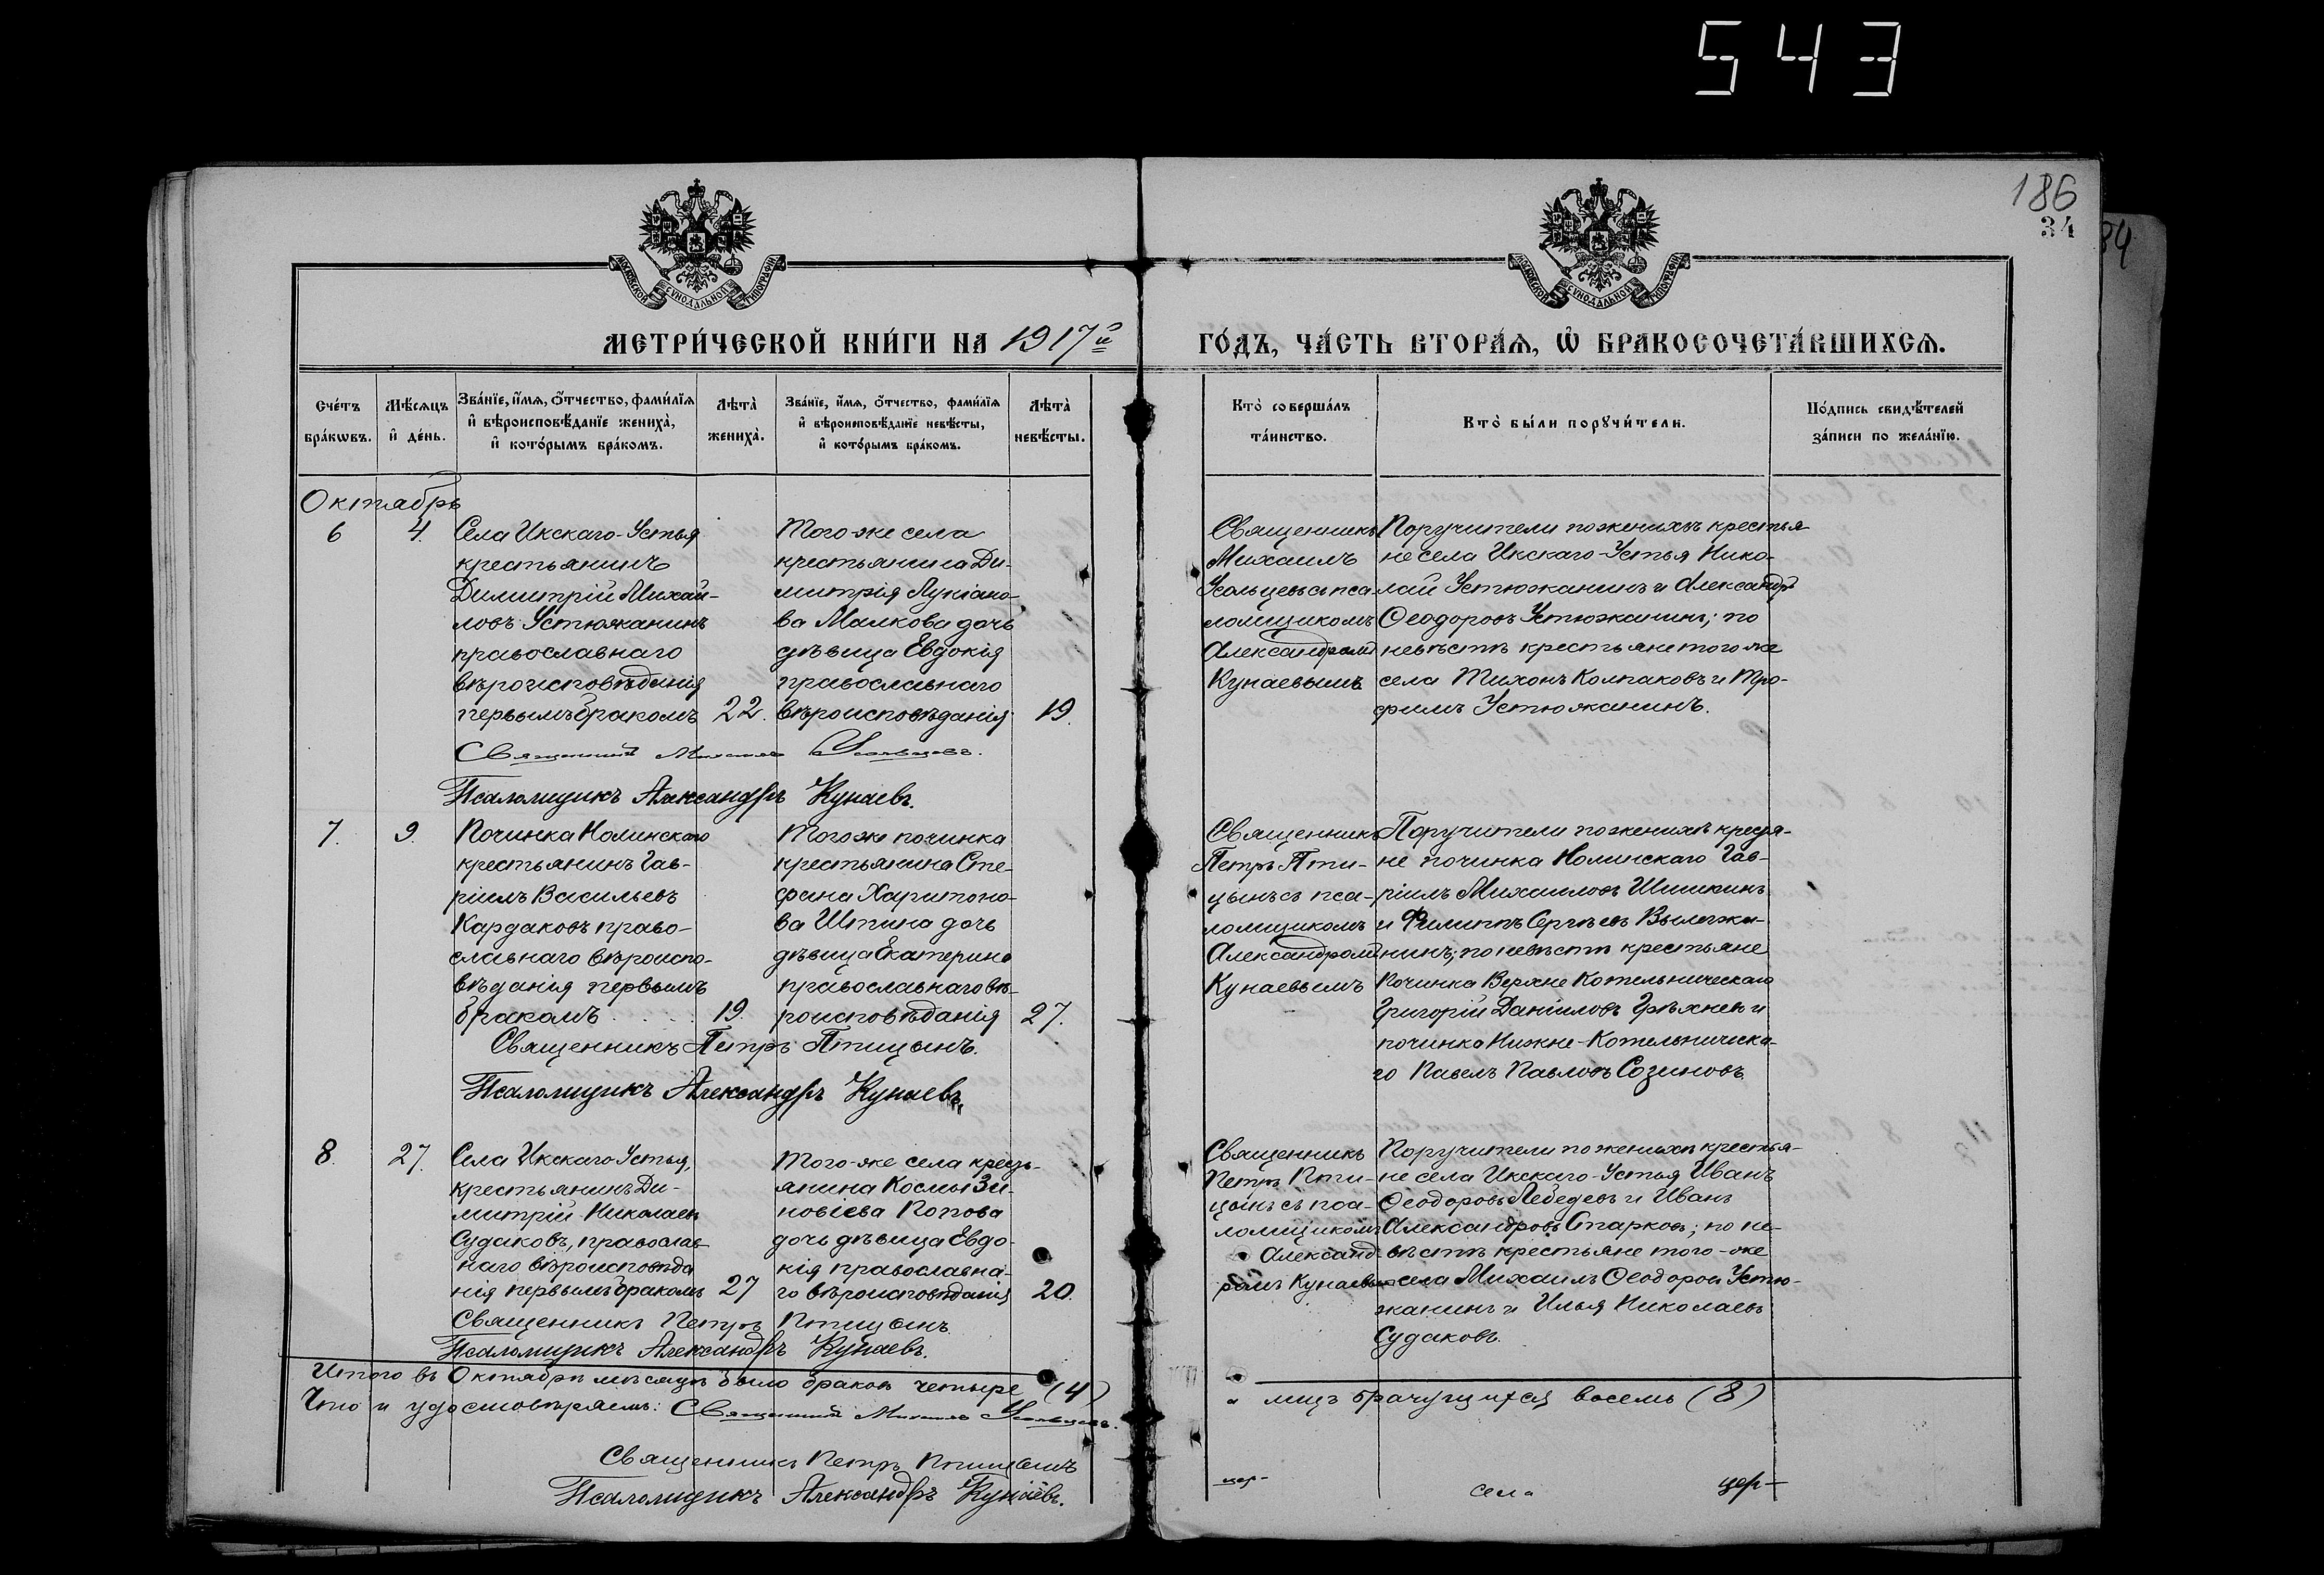 543
186
34
34
МОСКОВСКОЙ СѴНОДАЛЬНОЙ ТИПОГРАФІИ
МОСКОВСКОЙ СѴНОДАЛЬНОЙ ТИПОГРАФІИ
МЕТРИ́ЧЕСКОЙ КНИ́ГИ НА 1917й
ГО́ДЪ, ЧА́СТЬ ВТОРА́Ѧ, Ѡ҆ БРАКОСОЧЕТА́ВШИХСѦ.
Сче́тъ бра́кѡвъ.
Мѣ́сѧцъ и҆ де́нь.
Зва́нїе, и҆́мѧ, ѻ҆́тчество, фами́лїѧ и҆ вѣроисповѣ́данїе жениха̀, и҆ кото́рымъ бра́комъ.
Лѣта̀ жениха̀.
Зва́нїе, и҆́мѧ, ѻ҆́тчество, фами́лїѧ и҆ вѣроисповѣ́данїе невѣ́сты, и҆ кото́рымъ бра́комъ.
Лѣта̀ невѣ́сты.
Кто̀ соверша́лъ та́инство.
Кто̀ бы́ли порꙋчи́тели.
По́дпись свидѣ́телей за́писи по жела́нїю.
Октябрь
6
4.
Села Икскаго-Устья
крестьянинъ
Димитрій Михай-
ловъ Устюжанинъ
православнаго
вѣроисповѣданія
первымъ бракомъ
22.
Того-же села
крестьянина Ди-
митрія Лукіано-
ва Малкова дочь
дѣвица Евдокія
православнаго
вѣроисповѣданія
19.
Священникъ
Михаилъ
Усольцевъ съ пса-
ломщикомъ
Александромъ
Кунаевымъ
Поручители по женихѣ крестья
не села Икскаго-Устья Нико-
лай Устюжанинъ и Александръ
Ѳеодоровъ Устюжанинъ; по
невѣстѣ крестьяне того же
села Тихонъ Колпаковъ и Тро-
фимъ Устюжанинъ.
Священникъ Михаилъ Усольцевъ.
Псаломщикъ Александръ Кунаевъ.
7.
9.
Починка Нолинскаго
крестьянинъ Гав-
ріилъ Васильевъ
Кардаковъ право-
славнаго вѣроиспо-
вѣданія первымъ
бракомъ
19.
Того же починка
крестьянина Сте-
фана Харитоно-
ва Штина дочь
дѣвица Екатерина
православнаго вѣ-
роисповѣданія
27.
Священникъ
Петръ Пти-
цынъ съ пса-
ломщикомъ
Александромъ
Кунаевымъ
Поручители по женихѣ крестья-
не починка Нолинскаго Гав-
ріилъ Михаиловъ Шишкинъ
и Филиппъ Сергѣевъ Вылегжа-
нинъ; по невѣстѣ крестьяне
Починка Верхне Котельническаго
Григорій Даніиловъ Грѣхневъ и
починка Нижне-Котельническа-
го Павелъ Павловъ Созиновъ.
Священникъ Петръ Птицынъ.
Псаломщикъ Александръ Кунаевъ.
8.
27.
Села Икскаго Устья,
крестьянинъ Ди-
митрій Николаевъ
Судаковъ, православ-
наго вѣроисповѣда
нія первымъ бракомъ
27
Того-же села кресть-
янина Космы Зи-
новіева Попова
дочь дѣвица Евдо-
кія православна-
го вѣроисповѣданія
20.
Священникъ
Петръ Пти-
цынъ съ пса-
ломщикомъ
Александ-
ромъ Кунаевымъ
Поручители по женихѣ крестья-
не села Икскаго-Устья Иванъ
Ѳеодоровъ Лебедевъ и Иванъ
Александровъ Старковъ; по не-
вѣстѣ крестьяне того-же
села Михаилъ Ѳеодоровъ Устю-
жанинъ и Илья Николаевъ
Судаковъ.
Священникъ Петръ Птицынъ
Псаломщикъ Александръ Кунаевъ.
Итого въ Октябрѣ мѣсяцѣ было браковъ четыре (4)
и лицъ брачущихся восемь (8)
Что и удостовѣряемъ: Священникъ Михаилъ Усольцевъ.
Священникъ Петръ Птицынъ
Псаломщикъ Александръ Кунаевъ.
цер-
села
цер-